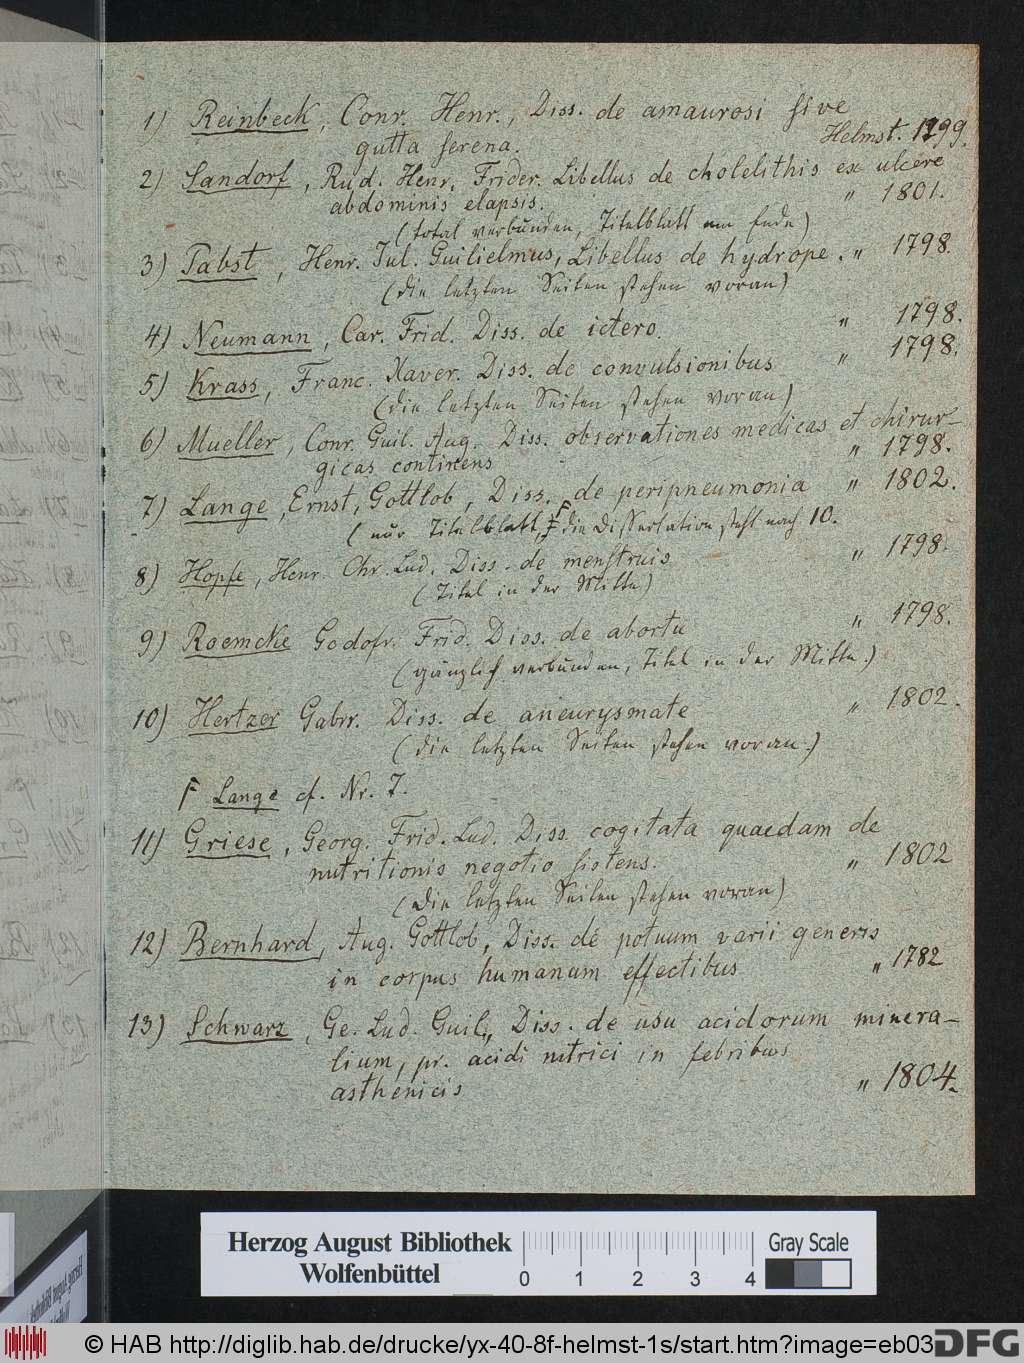 1) Reinbeck, Conr. Henr., Diss. de amaurosi sive
gutta serena. Helmst. 1799.
2) Sandorf, Rud. Henr. Frider. Libellus de cholelithis ex ulcere
abdominis elapsis. " 1801.
(total verbunden, Titelblatt am Ende)
3) Pabst, Henr. Jul. Guilielmus, Libellus de hydrope. " 1798.
(die letzten Seiten stehen voran)
4) Neumann, Car. Frid. Diss. de ictero " 1798.
5) Krass, Franc. Xaver. Diss. de convulsionibus " 1798.
(die letzten Seiten stehen voran)
6) Mueller, Conr. Guil. Aug. Diss. observationes medicas et chirur-
gicas continens " 1798.
7) Lange, Ernst, Gottlob, Diss. de peripneumonia " 1802.
(nur Titelblatt, F die Dissertation steht nach 10.
8) Hopfe, Henr. Chr. Lud. Diss. de menstruis " 1798.
(Titel in der Mitte)
9) Roemcke Godofr. Frid. Diss. de abortu " 1798.
(gänzlich verbunden, Titel in der Mitte.)
10) Hertzer Gabr. Diss. de aneurysmate " 1802.
(die letzten Seiten stehen voran.)
F Lange cf. Nr. 7.
11) Griese, Georg. Frid. Lud. Diss. cogitata quaedam de
nutritionis negotio sistens. " 1802
(die letzten Seiten stehen voran)
12) Bernhard, Aug. Gottlob, Diss. de potuum varii generis
in corpus humanum effectibus " 1782
13) Schwarz, Ge. Lud. Guil., Diss. de usu acidorum minera-
lium, pr. acidi nitrici in febribus
asthenicis " 1804.
Herzog August Bibliothek
Wolfenbüttel
0 1 2 3 4
Gray Scale
© HAB http://diglib.hab.de/drucke/yx-40-8f-helmst-1s/start.htm?image=eb03
DFG